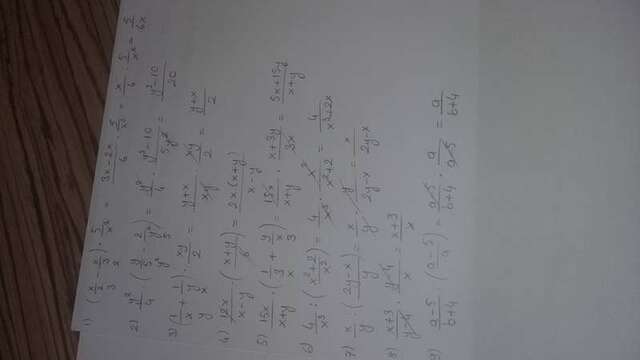 1) (x/2 - x/3) · 5/x² = 3x-2x/6 · 5/x² = x/6 · 5/x² = 5/6x
2) y²/4 · (y/5 - 2/y²) = y²/4 · y³-10/5y² = y³-10/20
3) (1/x + 1/y) · xy/2 = y+x/xy · xy/2 = y+x/2
4) 12x/x-y · (x+y/6) = 2x(x+y)/x-y
5) 15x/x+y · (1/3 + y/x) = 15x/x+y · x+3y/3x = 5x+15y/x+y
6) 4/x³ : (x²+2/x²) = 4/x³ · x²/x²+2 = 4/x³+2x
7) x/y · (2y-x/y) = x/y · y/2y-x = x/2y-x
8) x+3/y-4 · y-4/x = x+3/x
9) a-5/b+4 : (a-5/a) = a-5/b+4 · a/a-5 = a/b+4